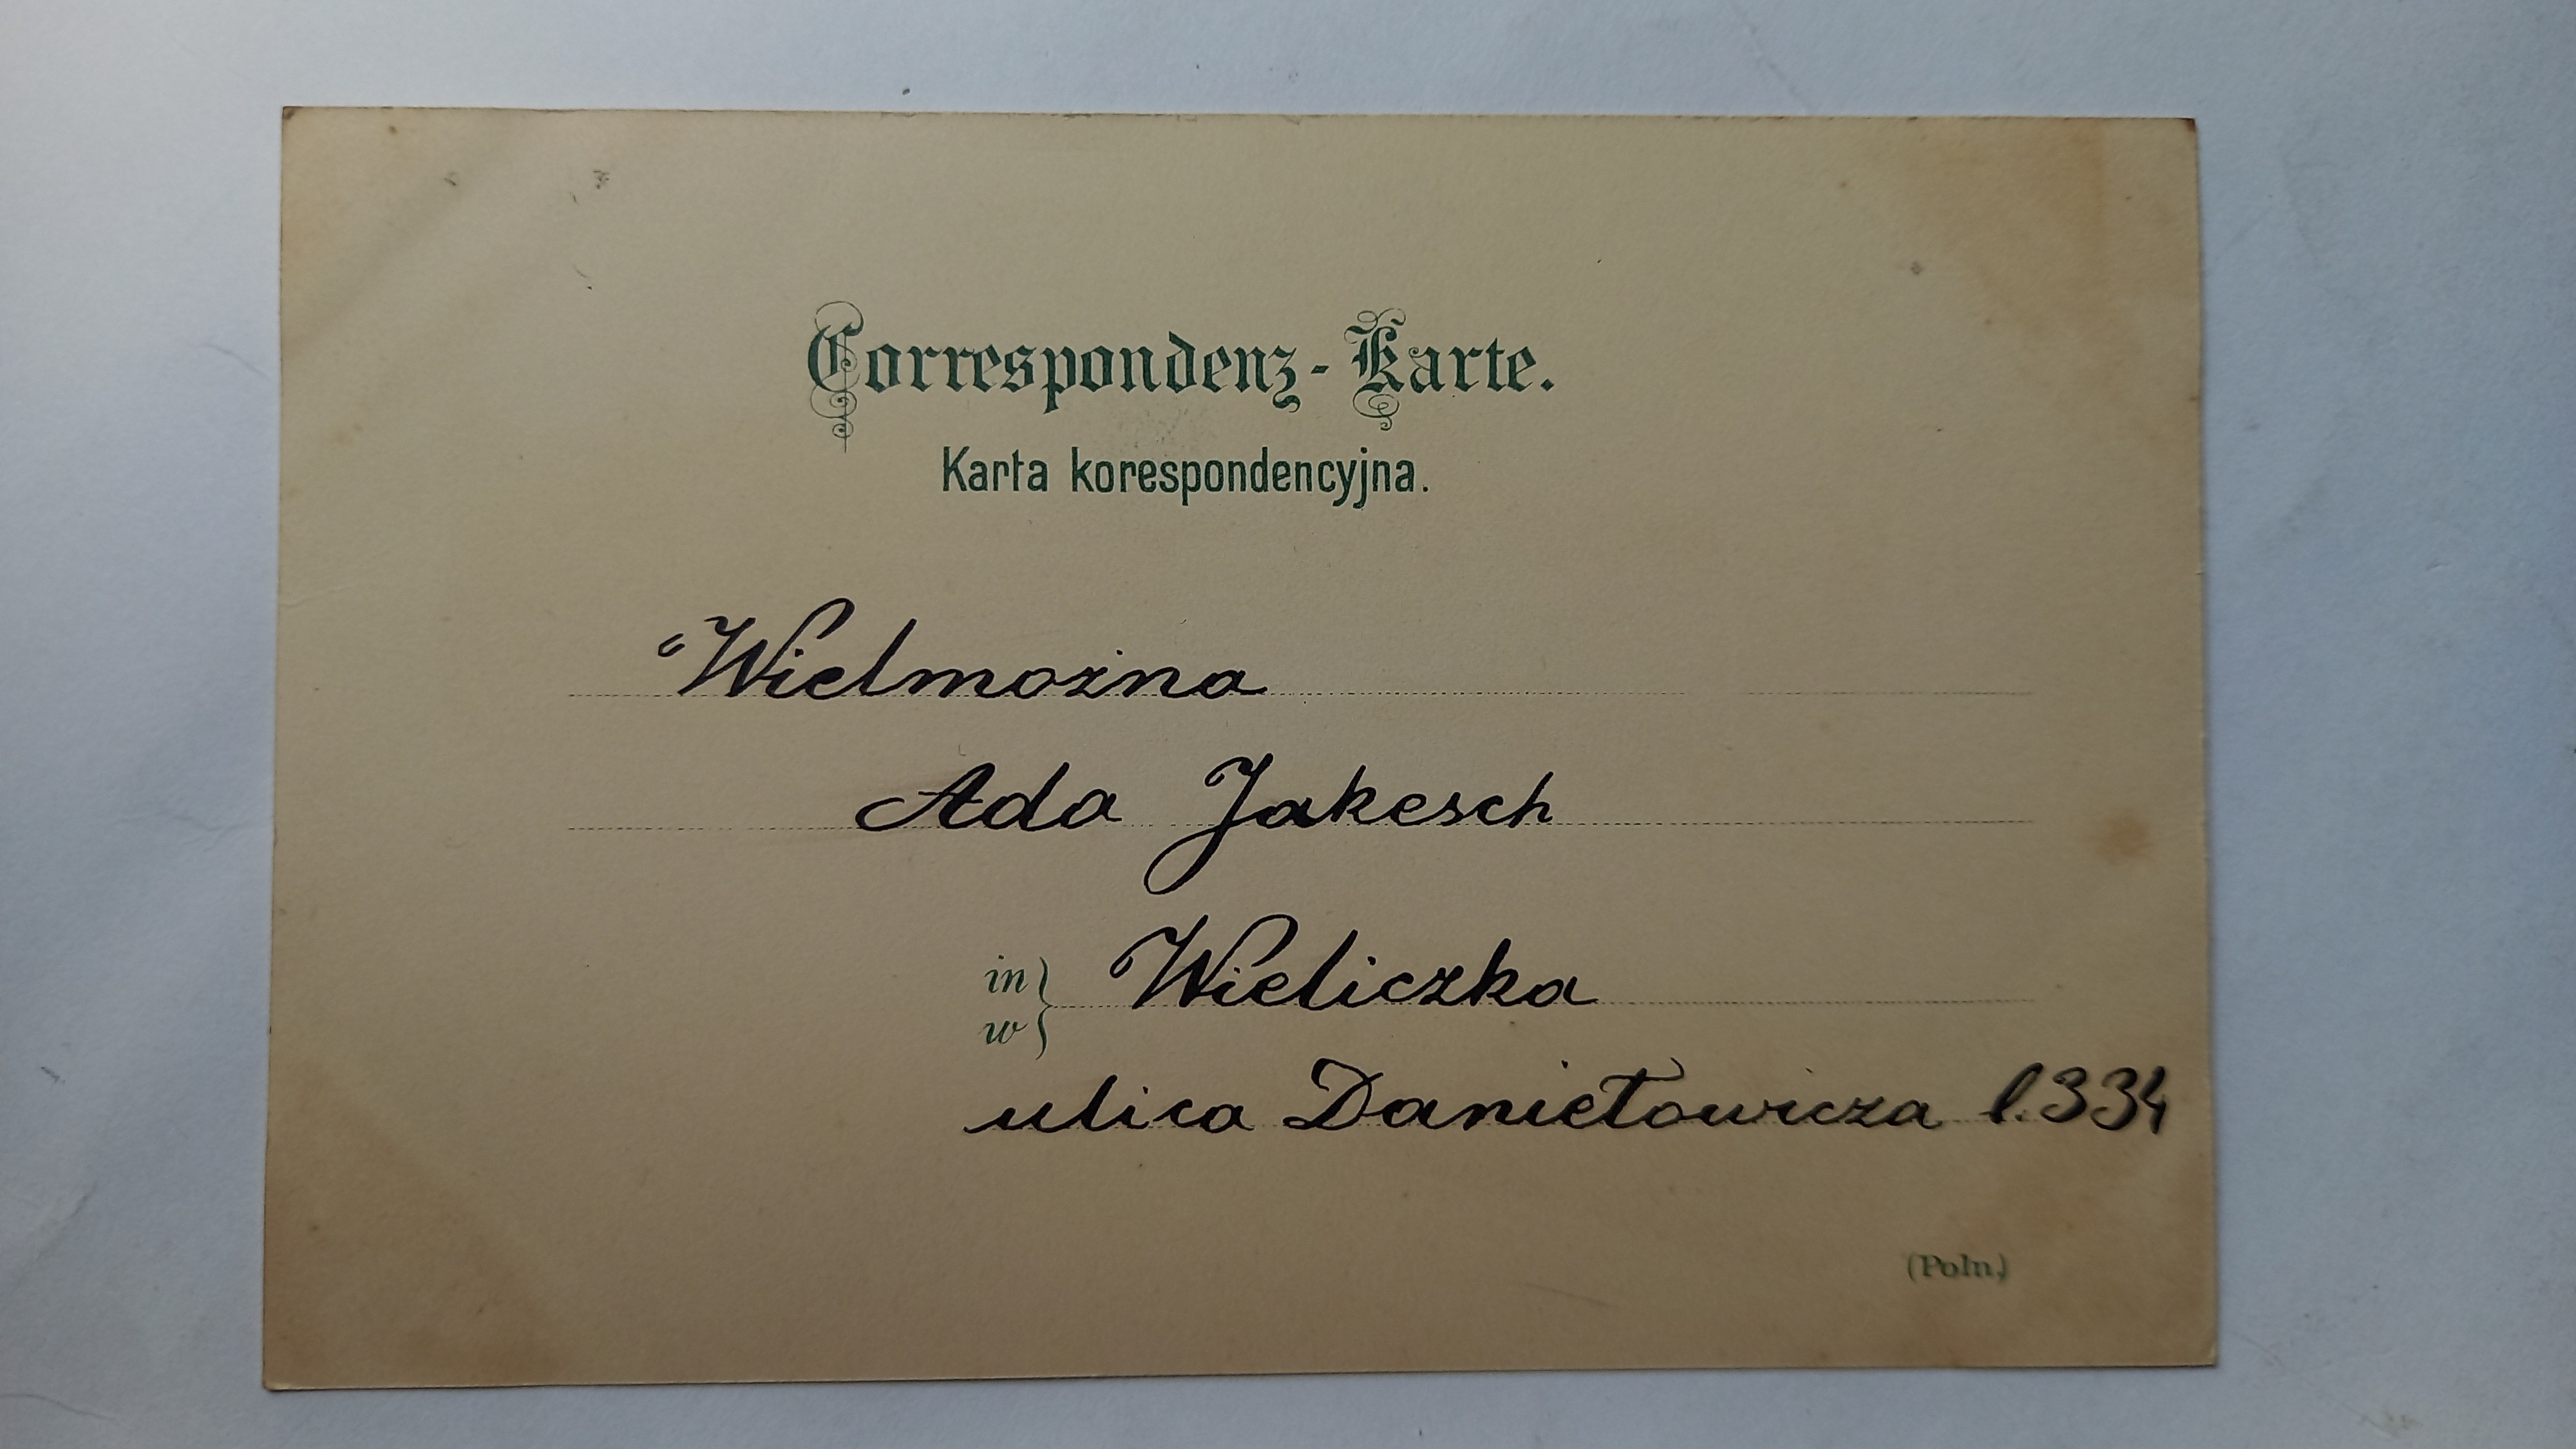 Correspondenz-Karte.
Karta korespondencyjna.
Wielmożna
Ada Jakesch
in
w } Wieliczka
ulica Daniełowicza l. 334
(Poln.)